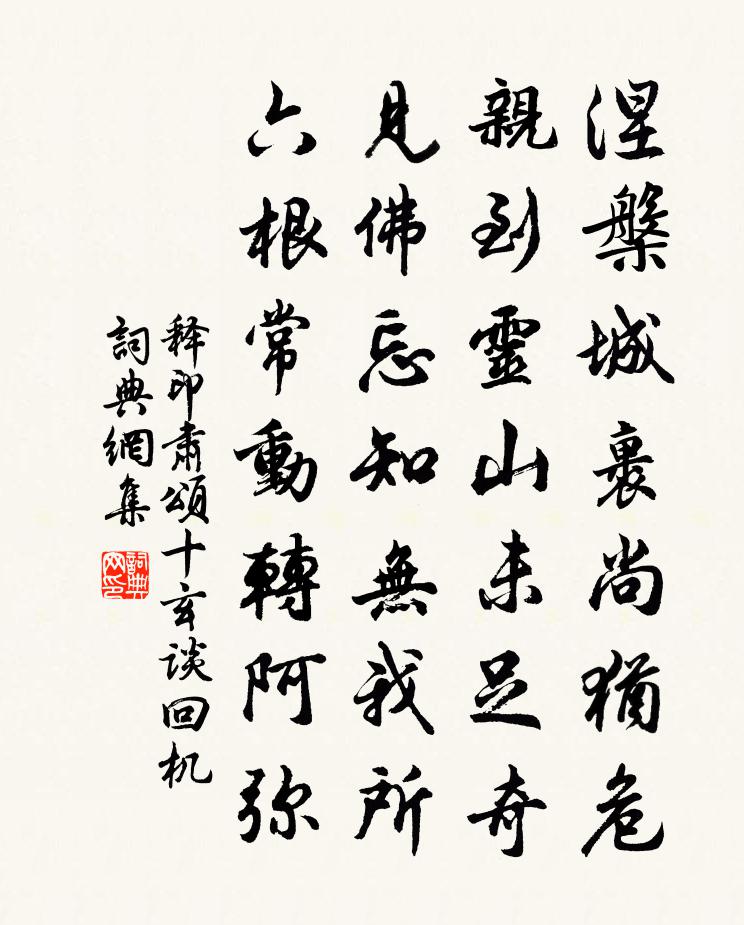 涅槃城裏尚猶危
親到靈山未足奇
見佛忘知無我所
六根常動轉阿弥
释印肃頌十玄谈回机
詞典網集
詞典
网印